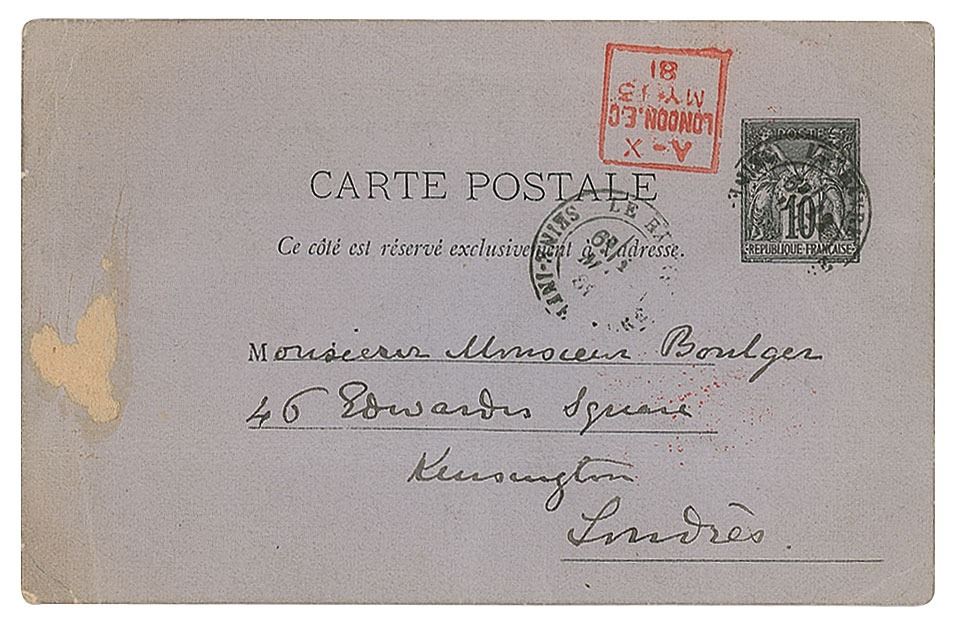 A-X
LONDON.E.C
MY 13
81
POSTE
10
REPUBLIQUE FRANÇAISE
CARTE POSTALE
LE
Ce côté est réservé exclusivement à l'adresse.
Monsieur Monsieur Boulger
46 Edwardes Square
Kensington
Londrès.